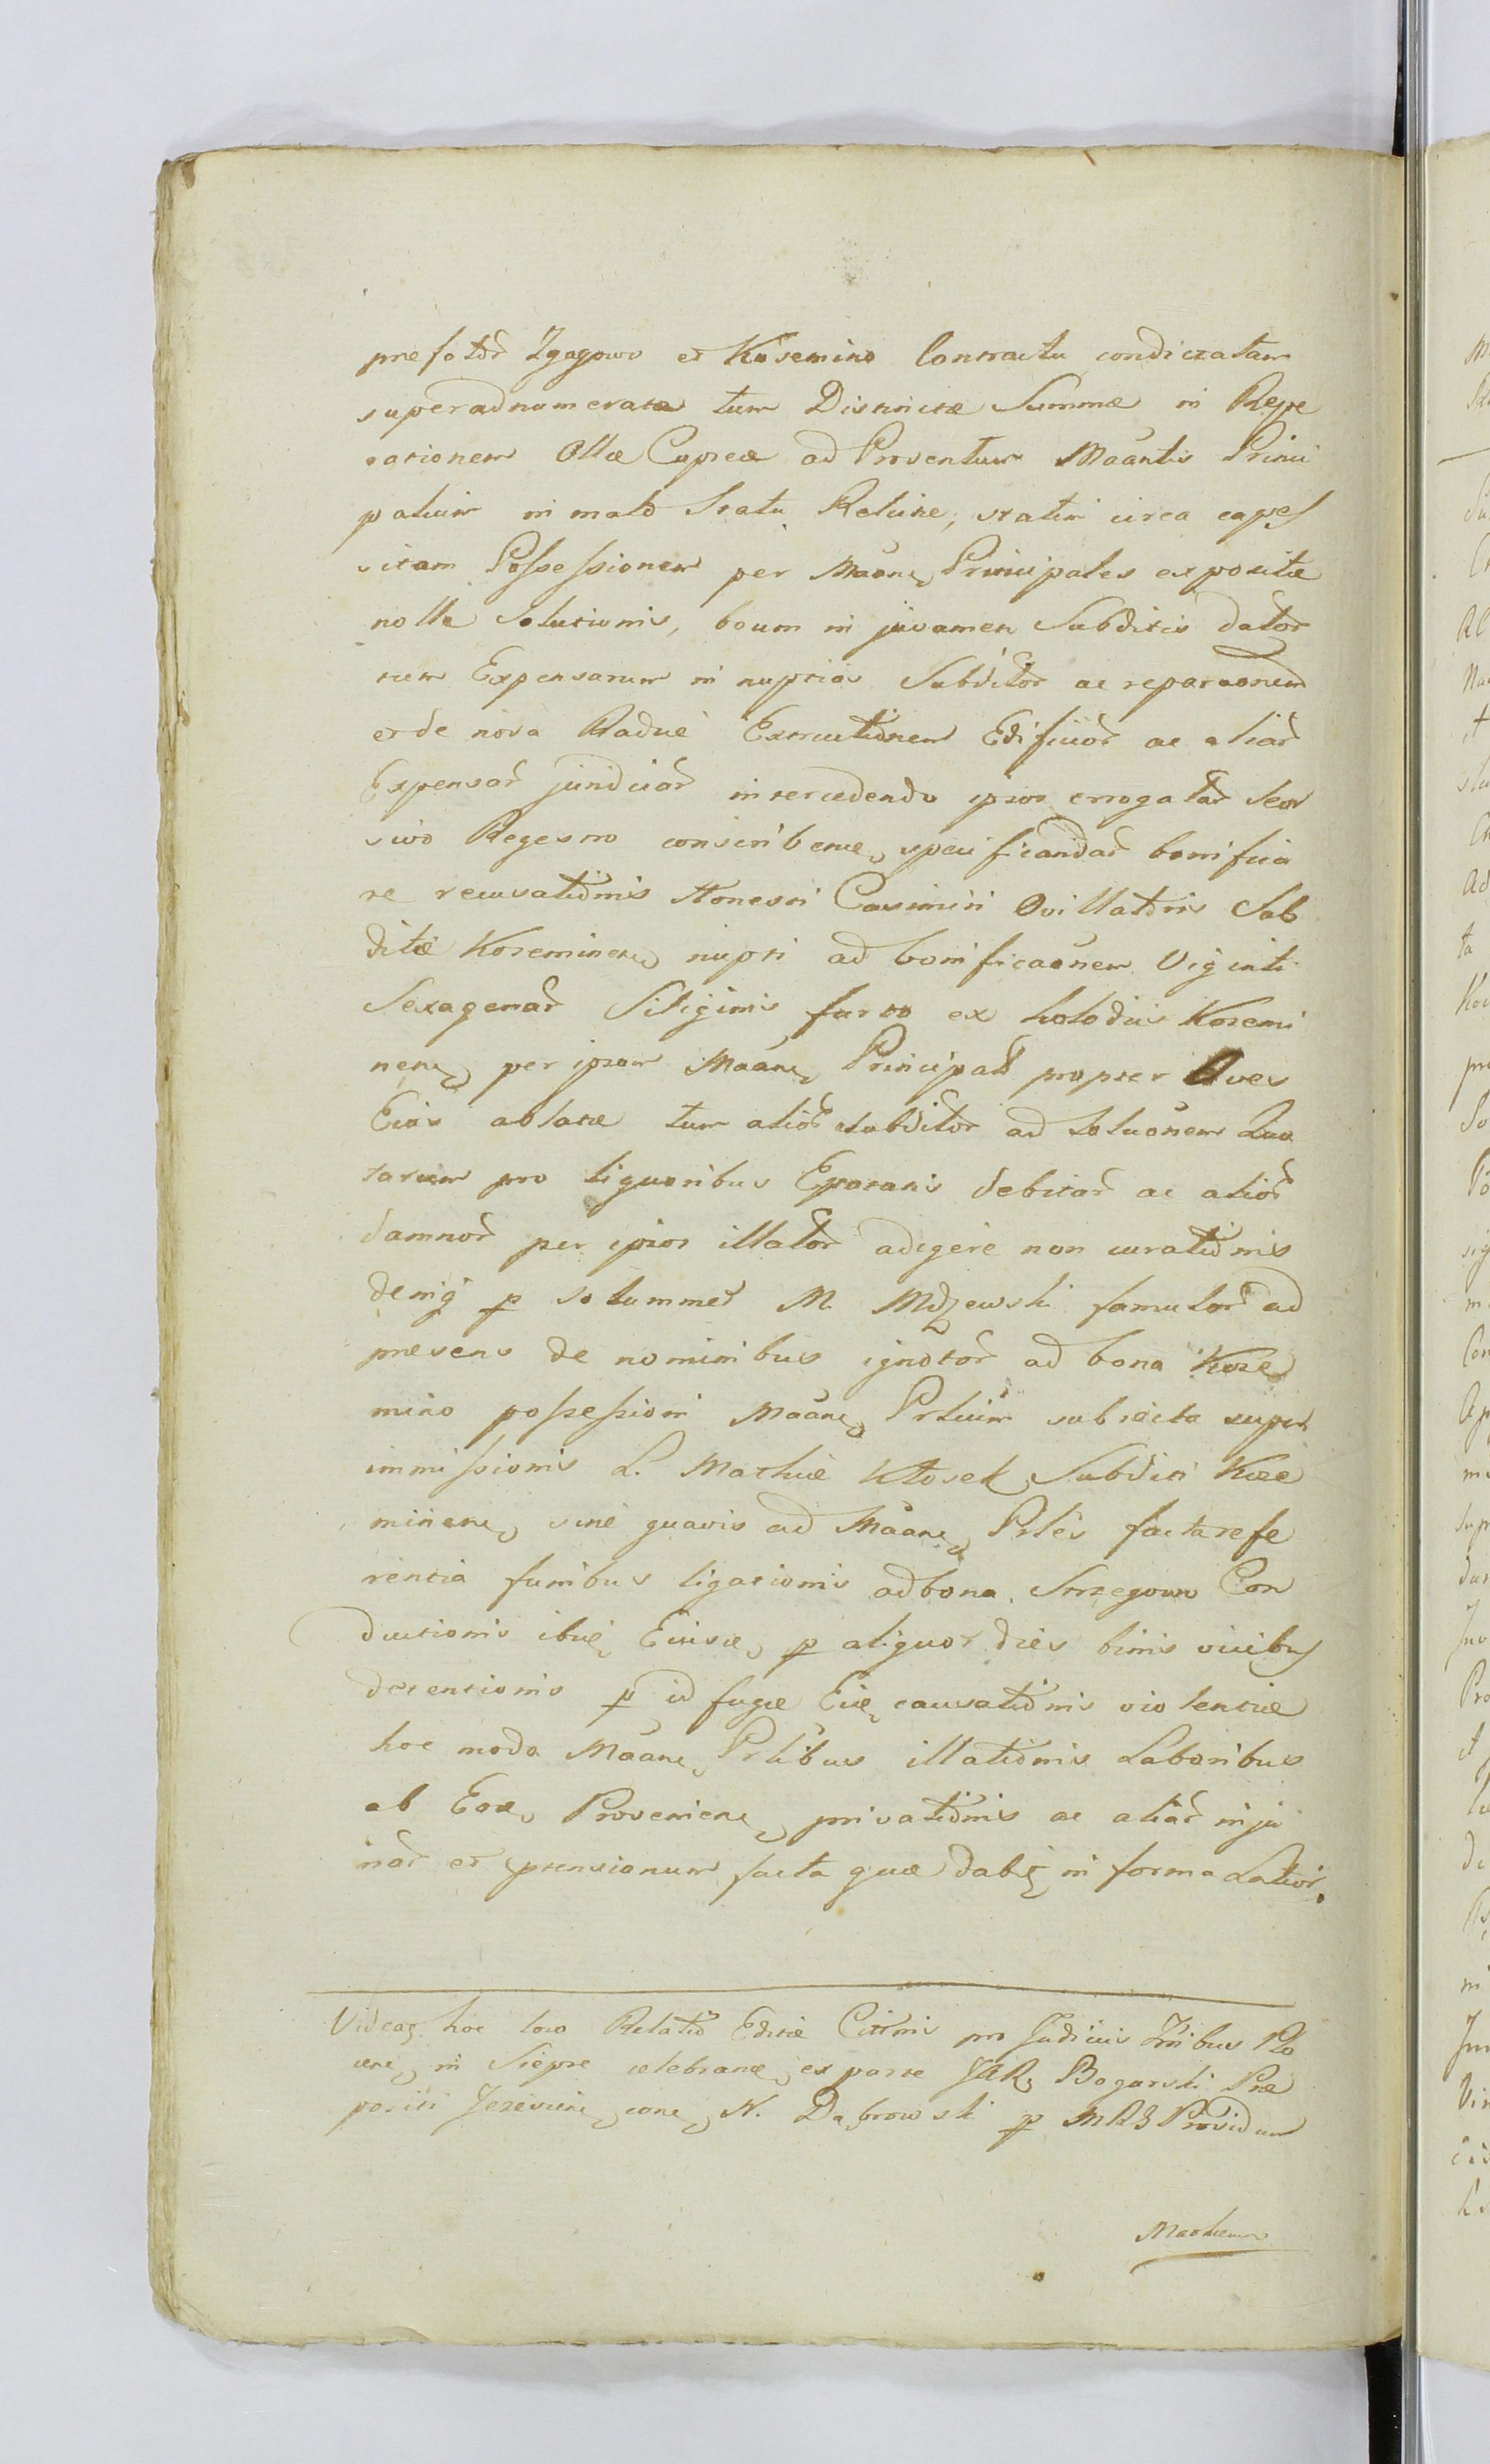 prefator Zgagowo et Kosemino Contractu condictatam
superadnumeratæ tum Distinctæ Summæ in Repe
rationem Ollæ Cupreæ ad Proventum Maantis Princi
palium in malo Statu Relictæ, statim circa capes
sitam Possessionem per Maane Principales expositæ
nolle Solutionis, boum in juvamen Subditis dator
rum Expensarum in nuptias Subditor ac reparaonem
et de nova Radice Exructionem Edificior ac aliar
Expensar juridiciar intercedendo ipsos errogatar Seor
sivo Regestro conscribene, specificandar bonifica
re recusationis Honesti Casimiri Ovillatoris Sub
ditæ Koseminen, nupti ad bonificaonem Viginti
Sexagenar Siliginis furto ex holodiis Kosemi
nen, per ipsam Maane Principal propter Oves
Eius ablatæ tum alior Subditor ad Soluonem Quo
tarum pro liquoribus Epotatis debitar ac alior
damnor per ipsos illator adigere non curationis
deniq p solummet M. Mdzewski famulor ad
presens de nominibus ignotor ad bona Kose
mino possessioni Maane Prlium subiecta super
immissionis L. Mathiæ Kłosek, Subditi Kose
minene, sine quavis ad Maane Prles facta refe
rentia funibus ligationis ad bona Strzegowo Con
ductionis ibiq, Eiusd, p aliquot dies binis vicibus
detentionis p id fugæ Eiq causationis violentiæ
hoc modo Maane Prlibus illationis Laboribus
ab Eod, Proveniene, privationis ac aliar inju
riar et ptensionum facta quæ dabit in forma Latior.
Videat hoc loco Relatio Editæ Cittnis pro Judiciis Tribus Plo
cene, in Sierpc celebrane, ex parte JAR, Bogarski Præ
positi Jezeviene, cone, N. Dąbrowski p MRS Providum
Mathæum